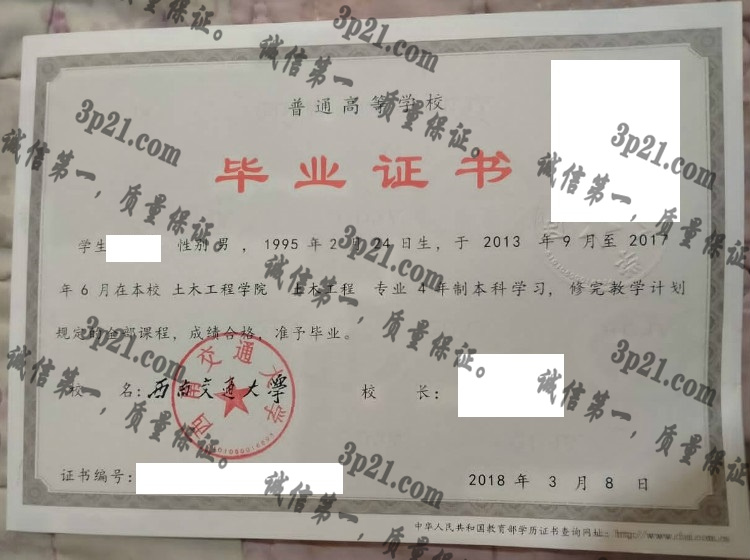 普通高等学校
毕业证书
学生 性别 男 ，1995 年 2 月 24 日生，于 2013 年 9 月至 2017
年 6 月在本校 土木工程学院 土木工程 专业 4 年制本科学习，修完教学计划
规定的全部课程，成绩合格，准予毕业。
校 名：西南交通大学
校 长：
西南交通大学
证书编号：
2018 年 3 月 8 日
中华人民共和国教育部学历证书查询网址：http://www.chsi.com.cn
3p21.com
诚信第一，质量保证。
3p21.com
诚信第一，质量保证。
3p21.com
诚信第一，质量保证。
3p21.com
诚信第一，质量保证。
3p21.com
诚信第一，质量保证。
3p21.com
诚信第一，质量保证。
3p21.com
诚信第一，质量保证。